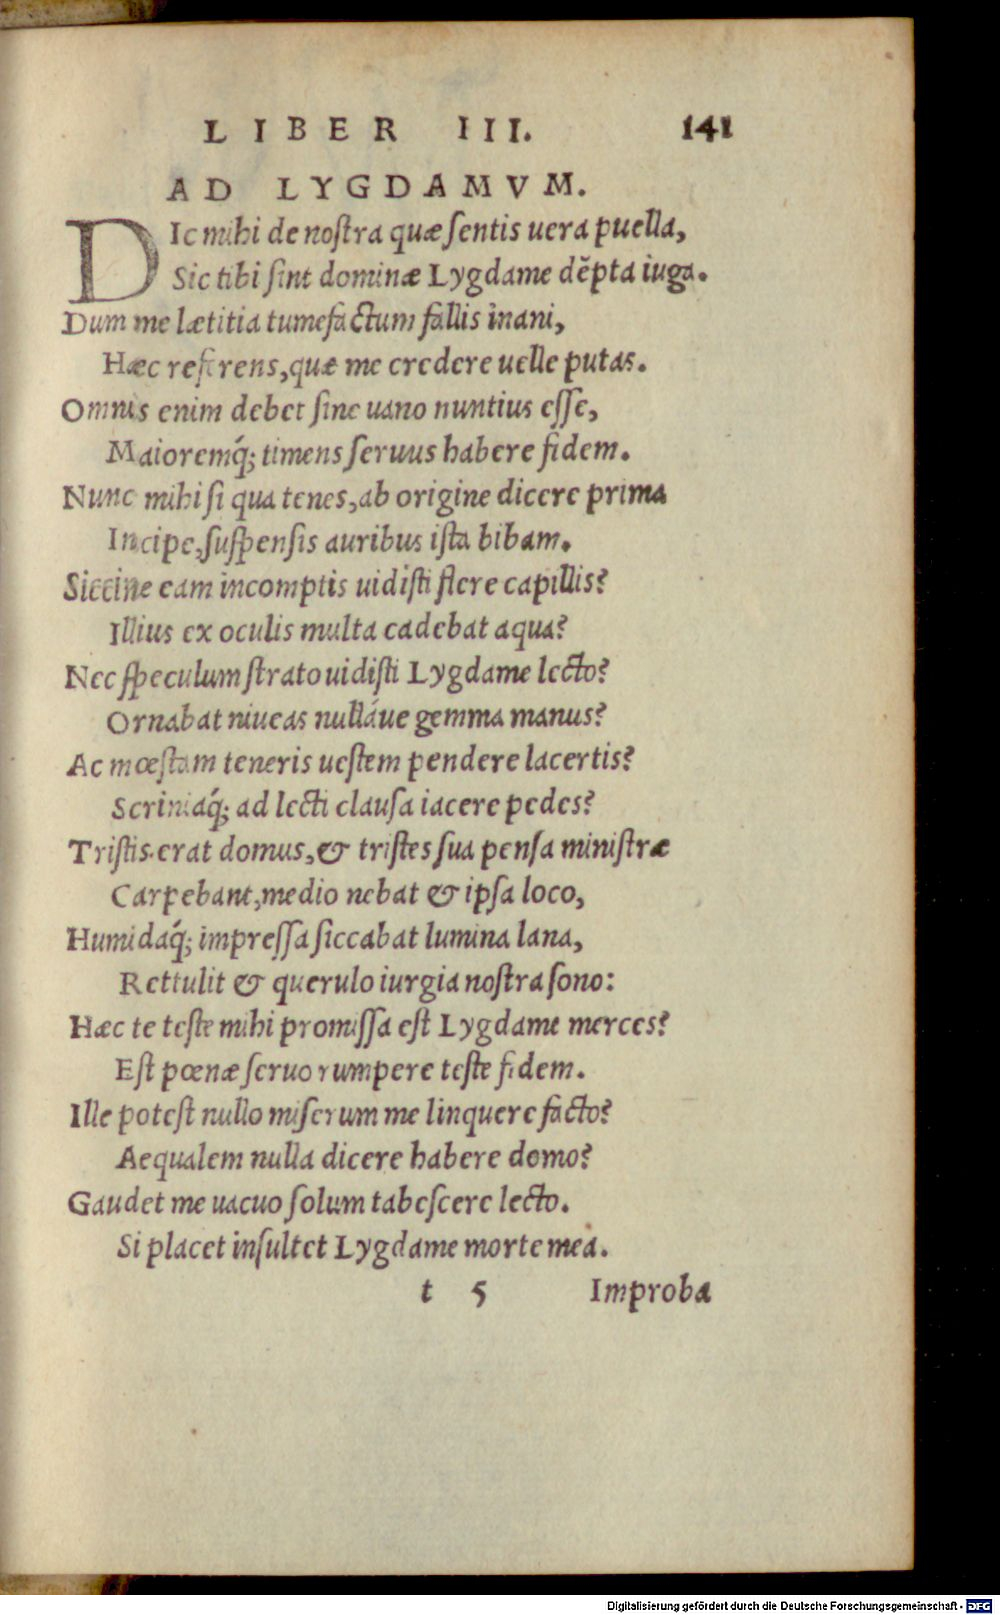 LIBER III. 141
AD LYGDAMVM.
DIc mihi de nostra quæ sentis uera puella,
Sic tibi sint dominæ Lygdame dẽpta iuga.
Dum me lætitia tumefactum fallis inani,
Hæc referens, quæ me credere uelle putas.
Omnis enim debet sine uano nuntius esse,
Maioremq́; timens seruus habere fidem.
Nunc mihi si qua tenes, ab origine dicere prima
Incipe, suspensis auribus ista bibam.
Siccine eam incomptis uidisti flere capillis?
Illius ex oculis multa cadebat aqua?
Nec speculum strato uidisti Lygdame lecto?
Ornabat niueas nulláue gemma manus?
Ac mœstam teneris uestem pendere lacertis?
Scriniaq́; ad lecti clausa iacere pedes?
Tristis erat domus, & tristes sua pensa ministræ
Carpebant, medio nebat & ipsa loco,
Humidaq́; impressa siccabat lumina lana,
Rettulit & querulo iurgia nostra sono:
Hæc te teste mihi promissa est Lygdame merces?
Est pœnæ seruo rumpere teste fidem.
Ille potest nullo miserum me linquere facto?
Aequalem nulla dicere habere domo?
Gaudet me uacuo solum tabescere lecto.
Si placet insultet Lygdame morte mea.
t 5 Improba
Digitalisierung gefördert durch die Deutsche Forschungsgemeinschaft - DFG